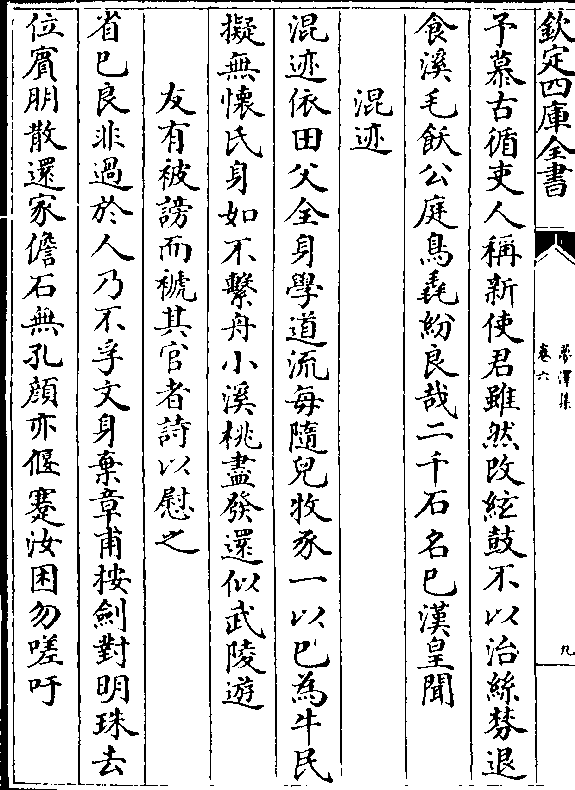 欽定四庫全書
夢澤集
卷六
九
予慕古循吏人稱新使君雖然改絃鼓不以治絲棼退
食溪毛飫公庭鳥毳紛良哉二千石名已漢皇聞
混迹
混迹依田父全身學道流毎隨兒牧豕一以已為牛民
擬無懷氏身如不繫舟小溪桃盡發還似武陵遊
友有被謗而褫其官者詩以慰之
省已良非過於人乃不孚文身棄章甫按劍對明珠去
位賓朋散還家儋石無孔顔亦偃蹇汝困勿嗟吁